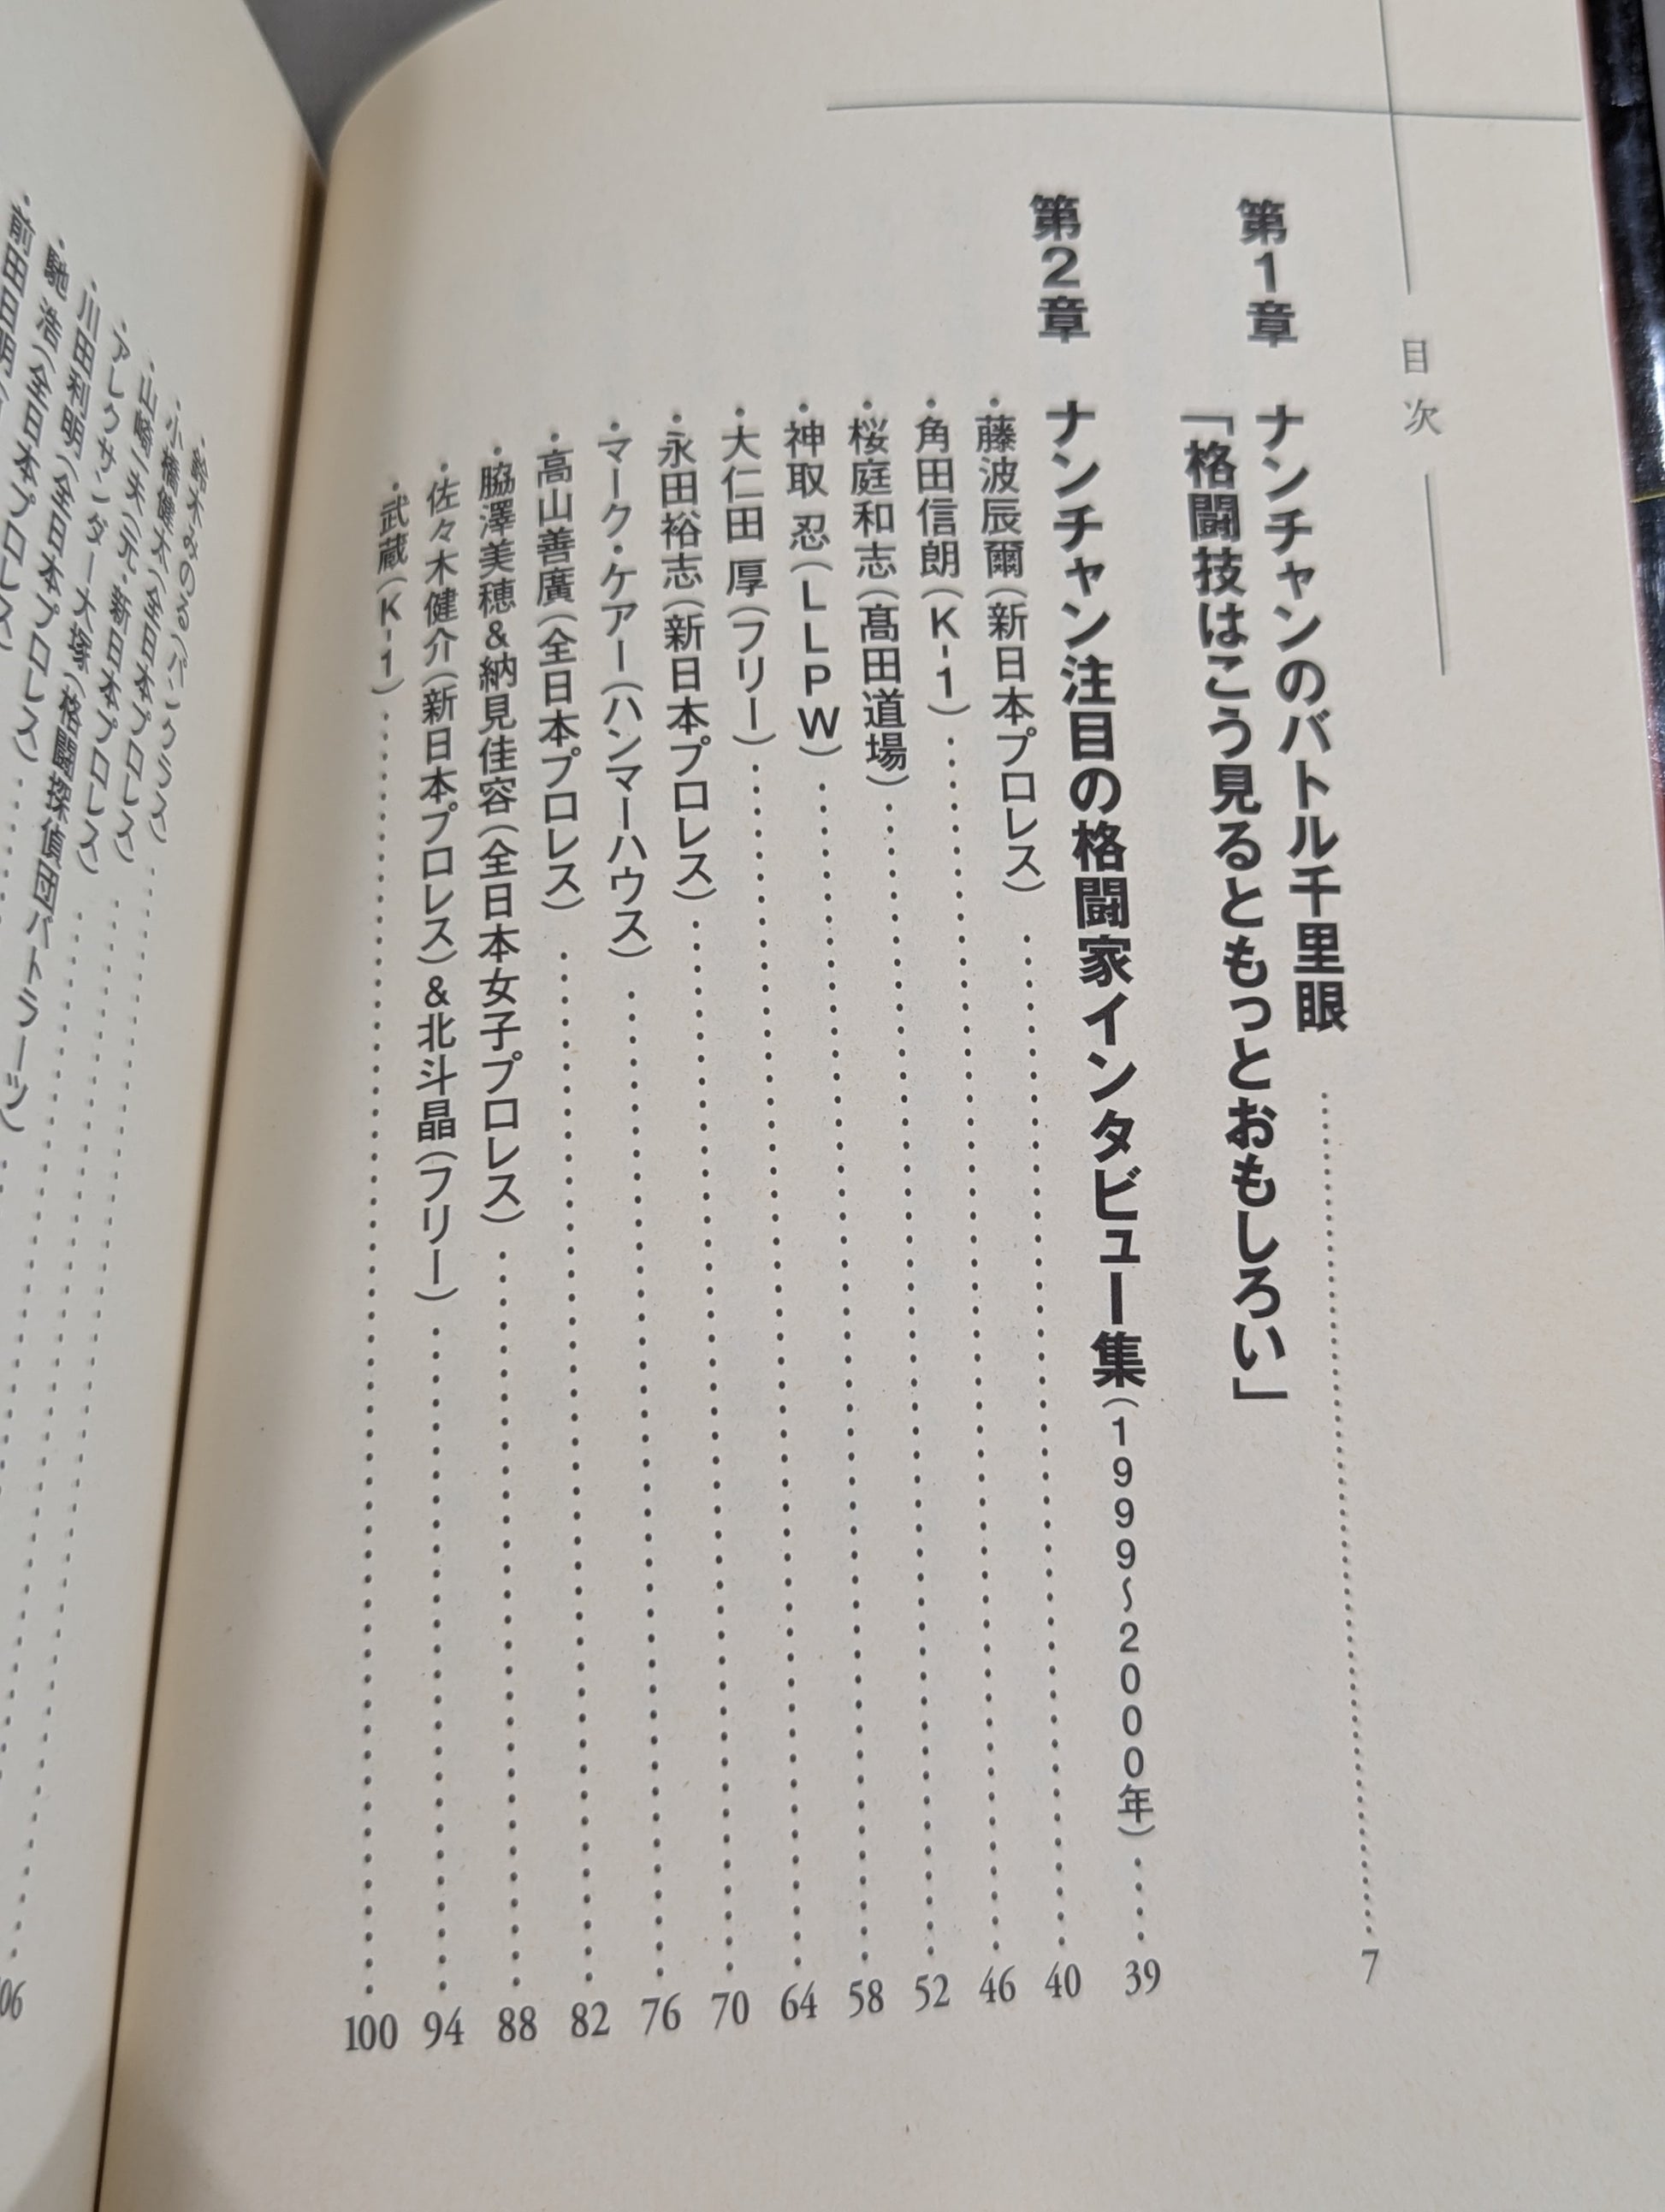 目次
第1章 ナンチャンのバトル千里眼
「格闘技はこう見るともっとおもしろい」……7
第2章 ナンチャン注目の格闘家インタビュー集(1999〜2000年)……39
・藤波辰爾(新日本プロレス)……40
・角田信朗(K-1)……46
・桜庭和志(髙田道場)……52
・神取 忍(LLPW)……58
・大仁田 厚(フリー)……64
・永田裕志(新日本プロレス)……70
・マーク・ケアー(ハンマーハウス)……76
・高山善廣(全日本プロレス)……82
・脇澤美穂&納見佳容(全日本女子プロレス)……88
・佐々木健介(新日本プロレス)&北斗晶(フリー)……94
・武蔵(K-1)……100
・鈴木みのる(パンクラス)
・小橋健太(全日本プロレス)
・山崎一夫(元・新日本プロレス)
・アレクサンダー大塚(格闘探偵団バトラーツ)
・川田利明(全日本プロレス)
・馳 浩(全日本プロレス)
・前田日明